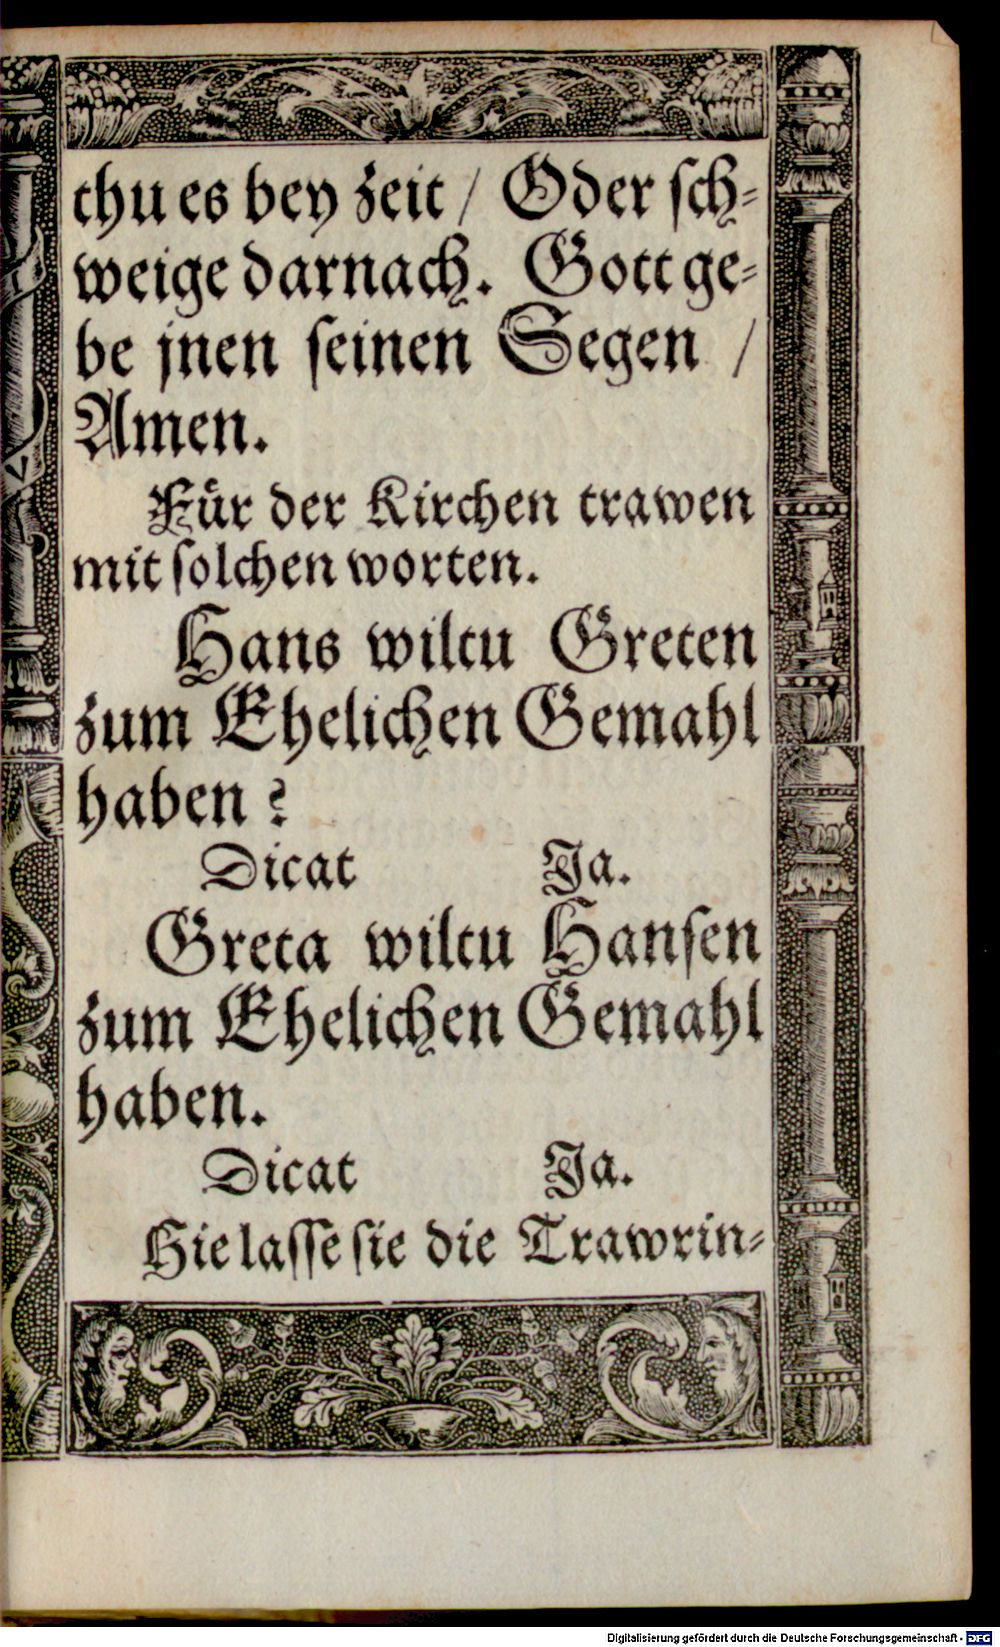 thu es bey zeit / Oder sch⸗
weige darnach. Gott ge⸗
be jnen seinen Segen /
Amen.
Für der Kirchen trawen
mit solchen worten.
Hans wiltu Greten
zum Ehelichen Gemahl
haben?
Dicat Ja.
Greta wiltu Hansen
zum Ehelichen Gemahl
haben.
Dicat Ja.
Hie lasse sie die Trawrin⸗
Digitalisierung gefördert durch die Deutsche Forschungsgemeinschaft - DFG